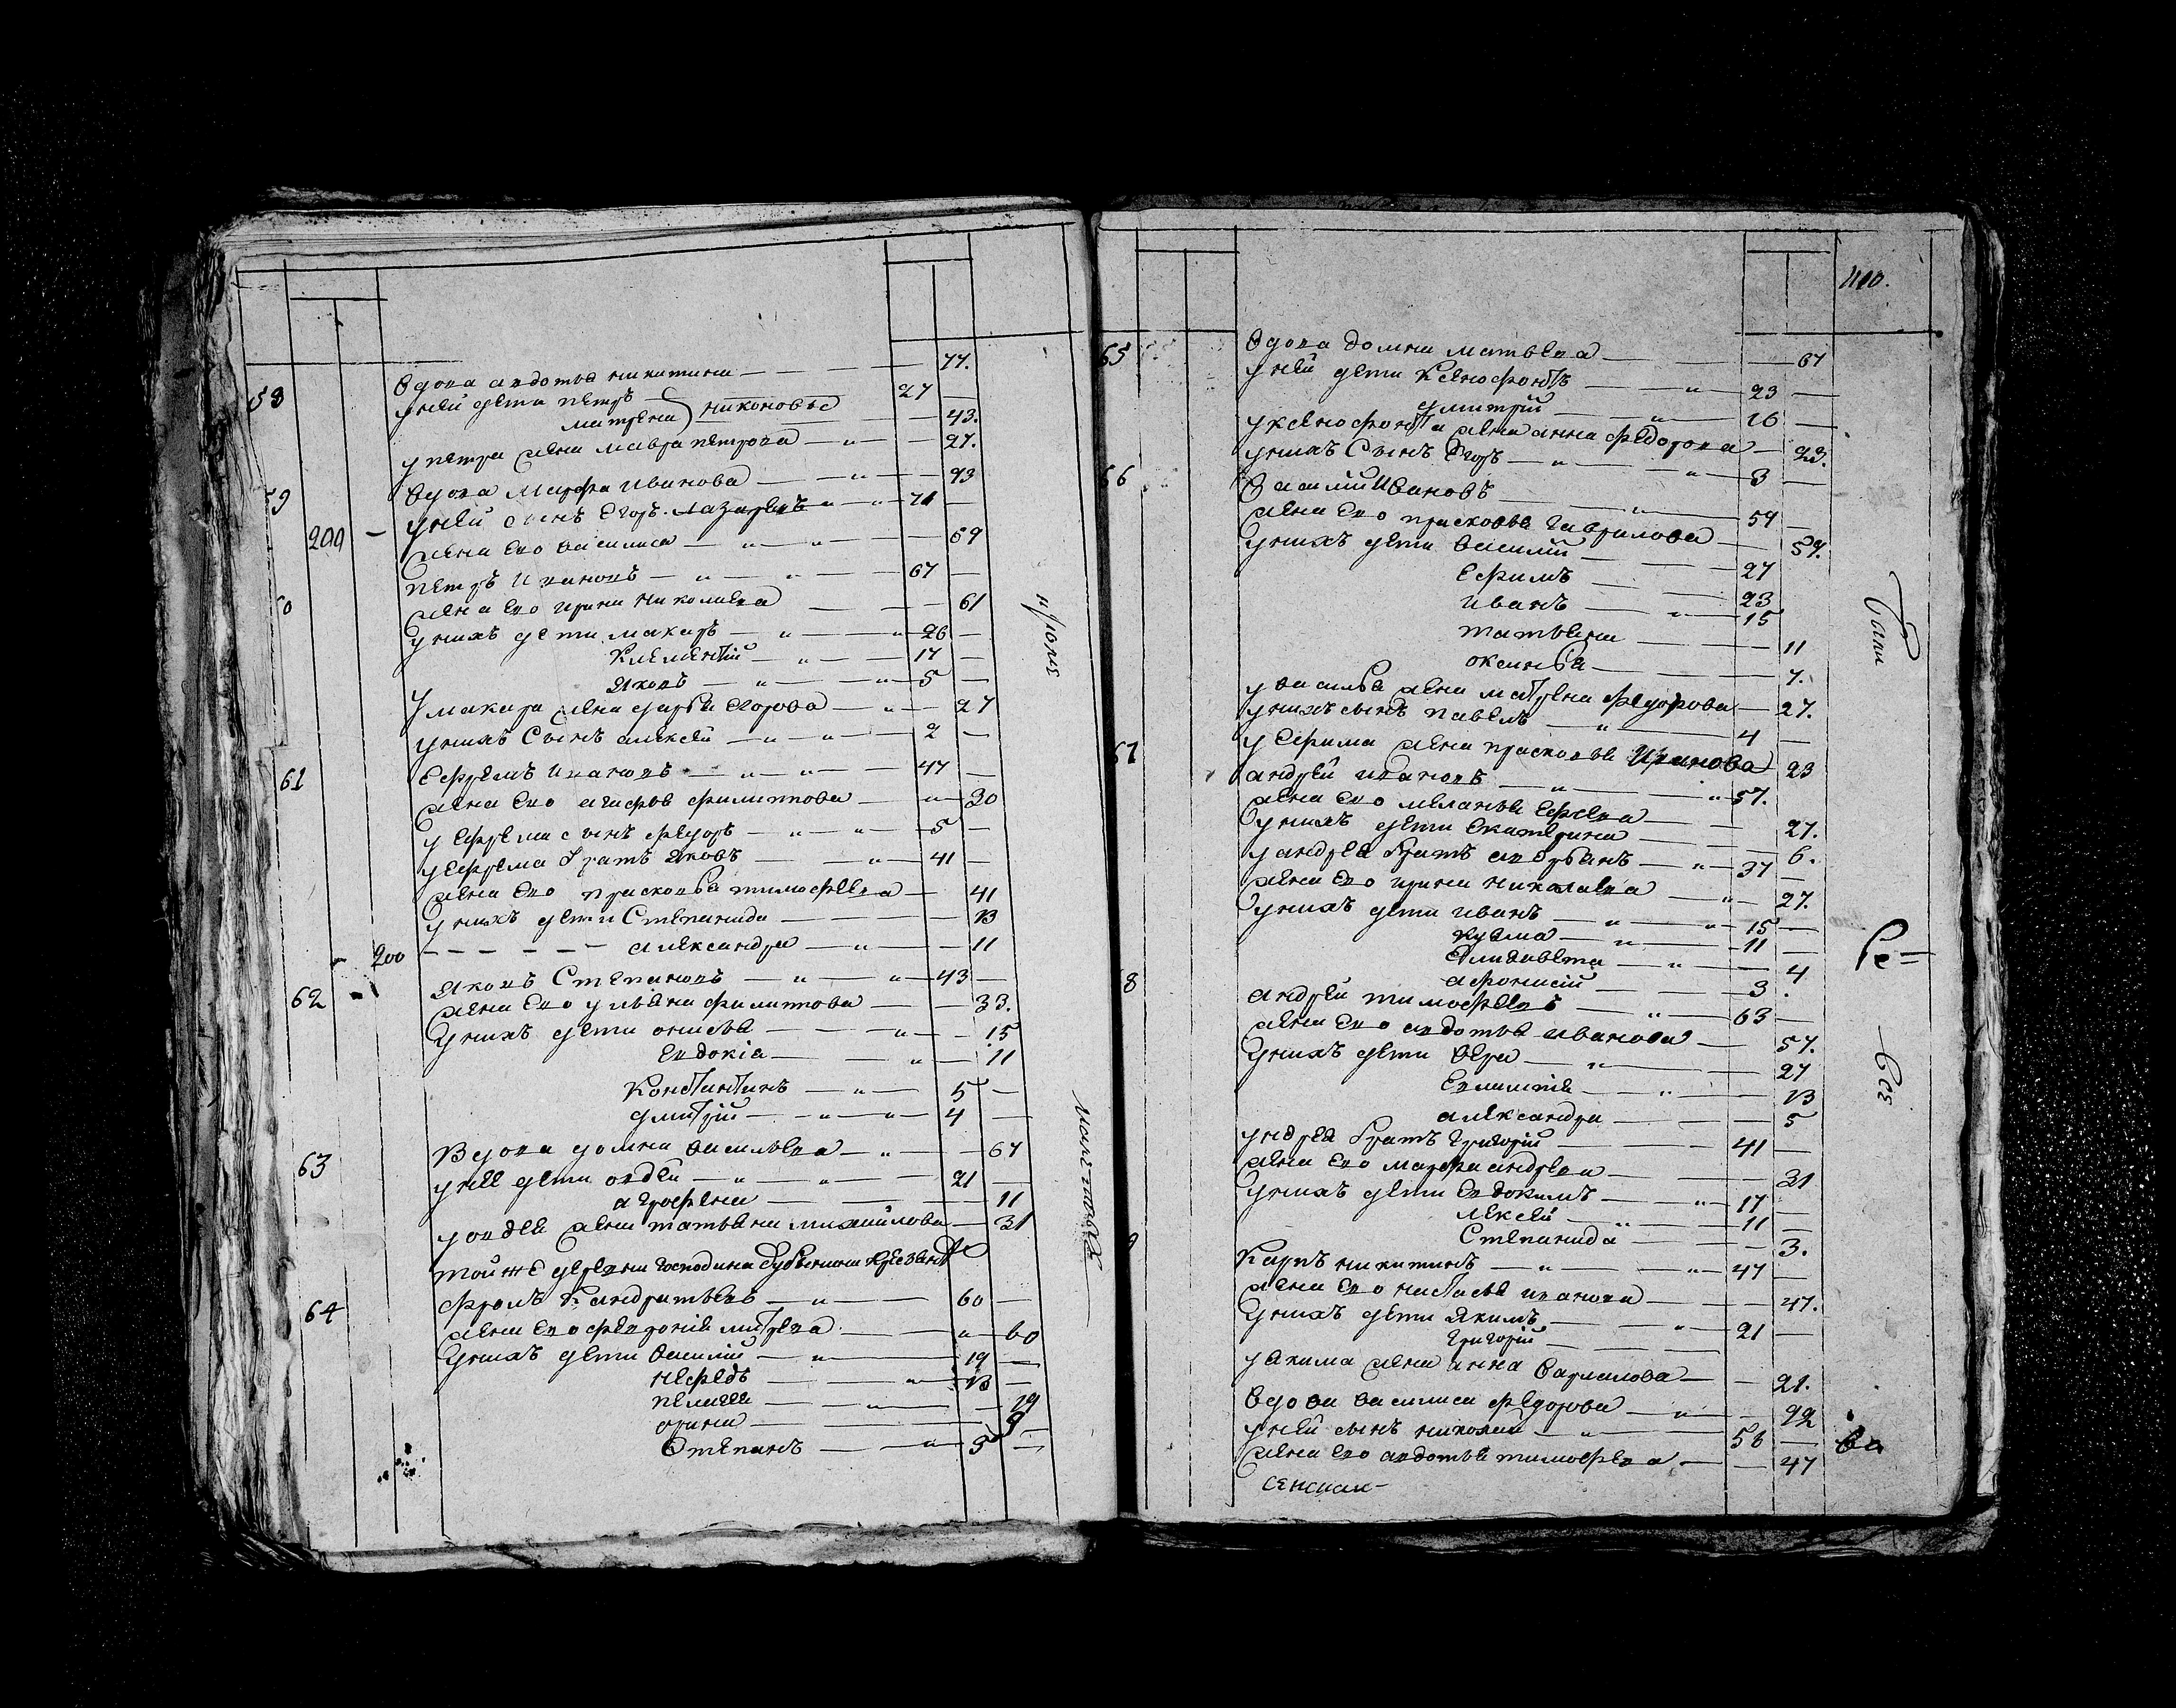 58 вдова авдотья никитина 77.
у ней дети петръ 27
матрена } никоновые 43.
у петра жена мавра петрова 27.
59 вдова Марфа иванова 93
у ней сынъ Егоръ лазаревъ 71
200 жена ево василиса 59
60 петръ ивановъ 67
жена ево ирина николаева 61
у нихъ дети макаръ 26
Климентiй 17
яковъ 5
у макара жена дарья егорова 27
у нихъ Сынъ алексей 2
61 Ефремъ ивановъ 47
жена ево агафья филипова 30
у ефрема сынъ федоръ 5
у ефрема братъ яковъ 41
жена ево прасковья тимофеева 41
у нихъ дети Степанида 13
200 александра 11
62 яковъ Степановъ 43
жена ево ульяна филипова 33.
у нихъ дети онисья 15
Евдокiа 11
Констянтинъ 5
дмитрiй 4
63 Вдова домна васильева 67
у нее дети авдей 21
агрофена 11
у авдея жена татьяна михайлова 31
той же деревни господина крестьяне
64 фролъ Кандратьевъ 60
жена ево феврония 60
у нихъ дети василiй 19
нефедъ 13
пелагея 19
орина 9
Степанъ 5
июля
110.
65 вдова домна матвева 67
у ней дети Ксенофонтъ 23
дмитрiй 16
у ксенофонта жена анна федотова 23.
у нихъ Сынъ Егоръ 3
66 Василiй Ивановъ 59
жена ево прасковья гаврилова 59.
у нихъ дети василiй 27
Ефимъ 23
иванъ 15
татьяна 11
оксинья 7.
у василья жена матрена федорова 27.
у нихъ сынъ павелъ 4
у ефима жена прасковья Иванова 23
67 андрей ивановъ 57.
жена ево меланья 27.
у нихъ дети екатерина 6.
у андрея братъ 37
жена ево ирина николаева 27.
у нихъ дети иванъ 15
кузма 11
Елизавета 4
афонасiй 3
8 андрей тимофеевъ 63
жена ево авдотья иванова 57.
у нихъ дети вера 27
13
александра 5
у ндрея братъ григорiй 41
жена ево марфа андреева 31
у нихъ дети Евдокимъ 17
лексей 11
Степанида 3.
9 Карпъ никитинъ 47
жена ево настасья иванова 47.
у нихъ дети якимъ 21
григорiй
у якима жена анна варламова 21.
вдова василиса федорова 92
у ней сынъ николай 56
жена ево авдотья тимофеева 47
Ре=
ва